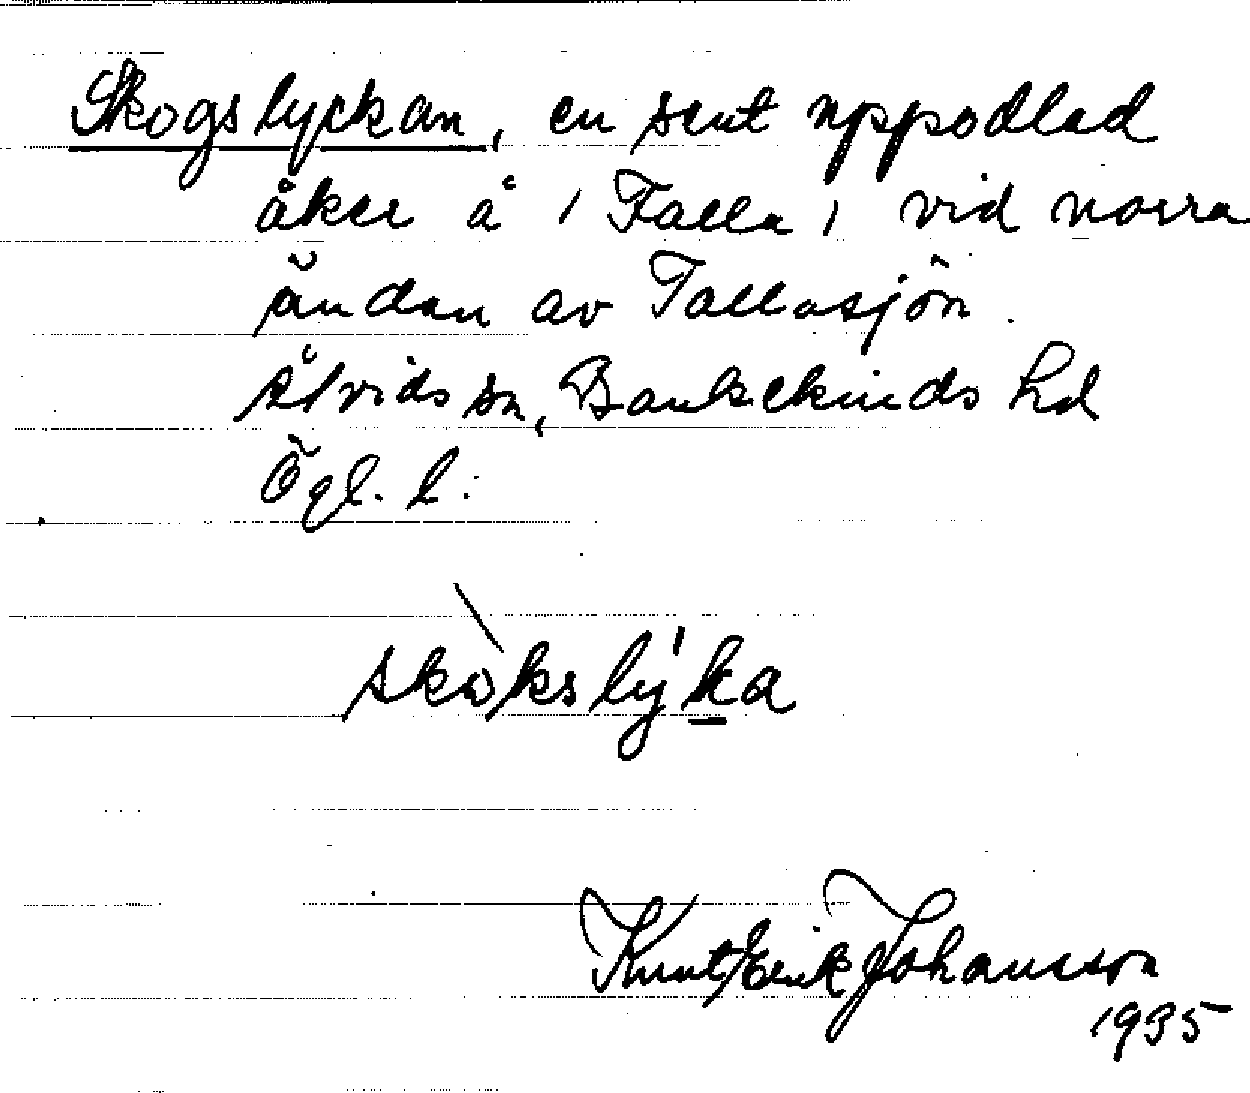 Skogslyckan, en sent uppodlad
åker å / Falla / vid norra
ändan av Fallasjön.
Åtvids sn, Bankekinds hd
Ögl. l.
skòkslýka
Knut Erik Johansson
1935